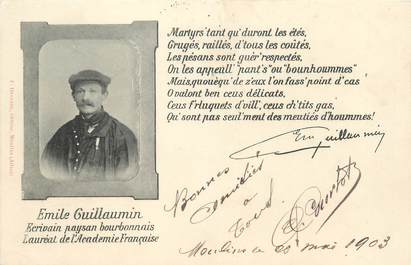 Martyrs'tant qu'duront les étés,
Grugés, raillés, d'tous les coûtés,
Les pésans sont guèr'respectés,
On les appeull' "pant's" ou "bounhoummes"
Mais, quouèqu' de z'eux l'on fass' point d'cas
O valont ben ceus délicats,
Ceus f'rluquets d'vill', ceus ch'tits gas,
Qu'sont pas seul'ment des meutiés d'hoummes!
Em Guillaumin
Bonnes
amitiés
à
Moulins le 28 mai 1903
Emile Guillaumin
Ecrivain paysan bourbonnais
Lauréat de l'Academie Française